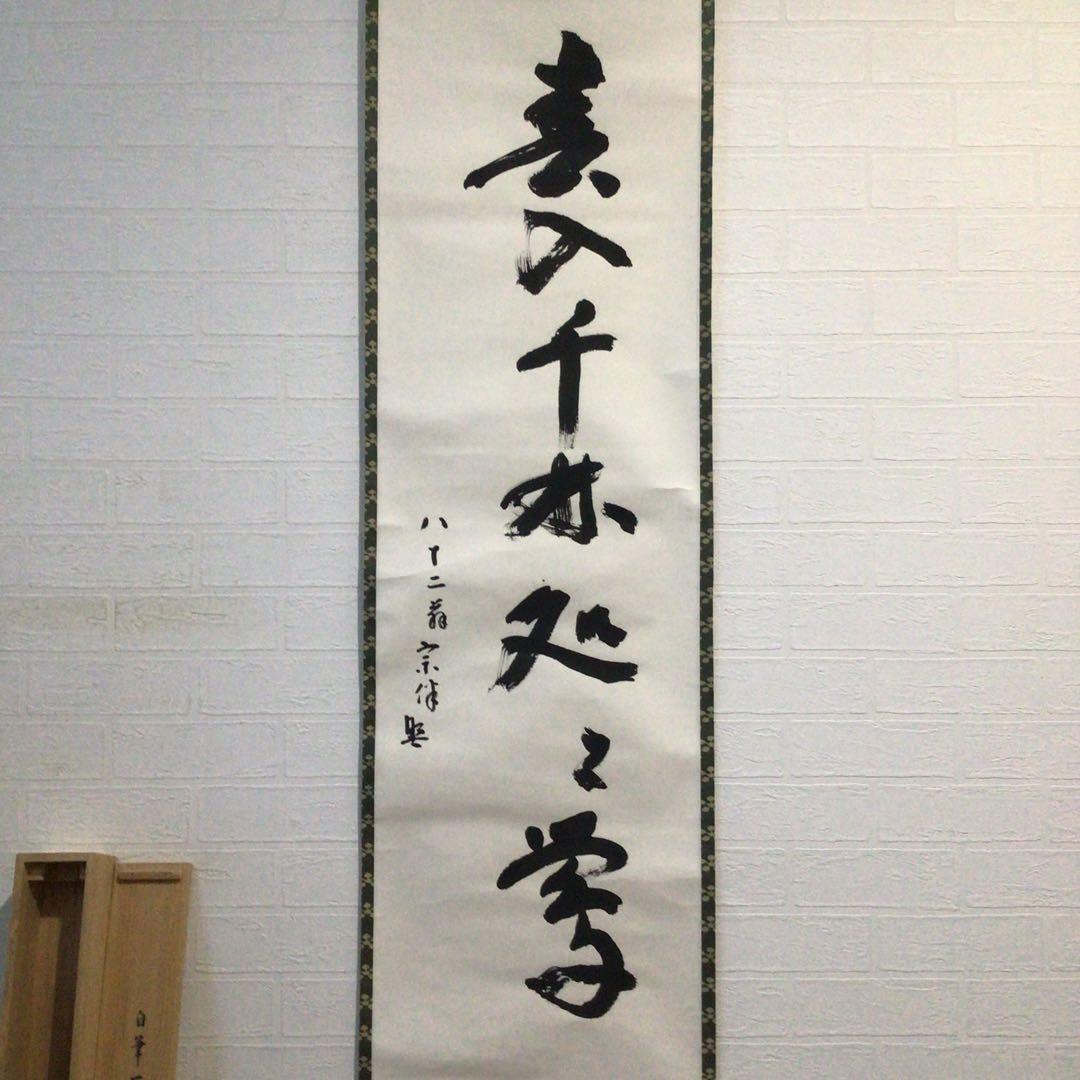 春入千林処々鶯
八十二翁宗伴
自筆